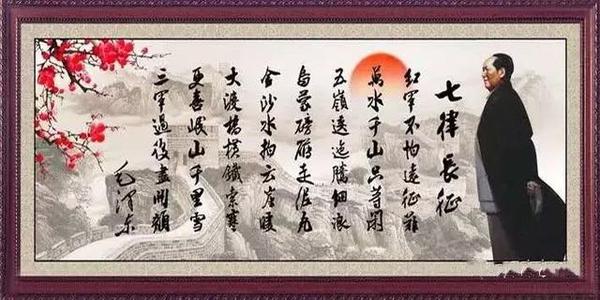 七律長征
紅軍不怕遠征難
萬水千山只等閑
五嶺逶迤騰細浪
烏蒙磅礴走泥丸
金沙水拍云崖暖
大渡橋橫鐵索寒
更喜岷山千里雪
三軍過後盡開顏
毛澤东